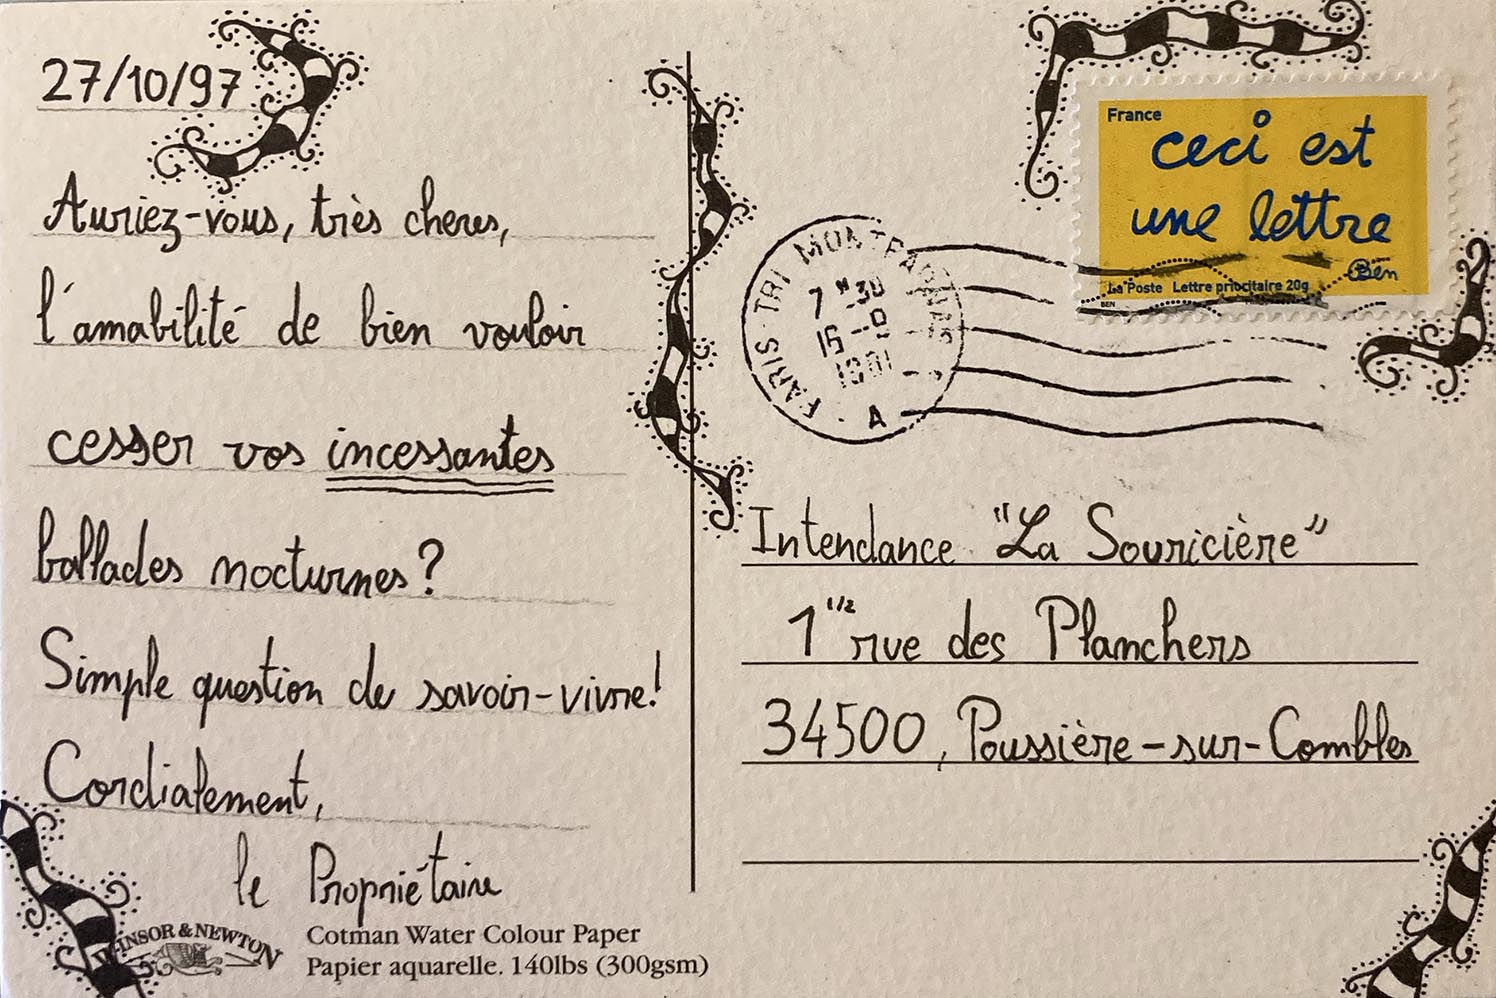 27/10/97
Auriez-vous, très cheres,
l'amabilité de bien vouloir
cesser vos incessantes
ballades nocturnes?
Simple question de savoir-vivre!
Cordialement,
le Propriétaire
WINSOR & NEWTON
Cotman Water Colour Paper
Papier aquarelle. 140lbs (300gsm)
France
ceci est
une lettre
Ben
La Poste Lettre prioritaire 20g
BEN
PARIS-TRI MONTPARNAS
7 H 30
A
Intendance "La Souricière"
1 1/2 rue des Planchers
34500, Poussière-sur-Combles